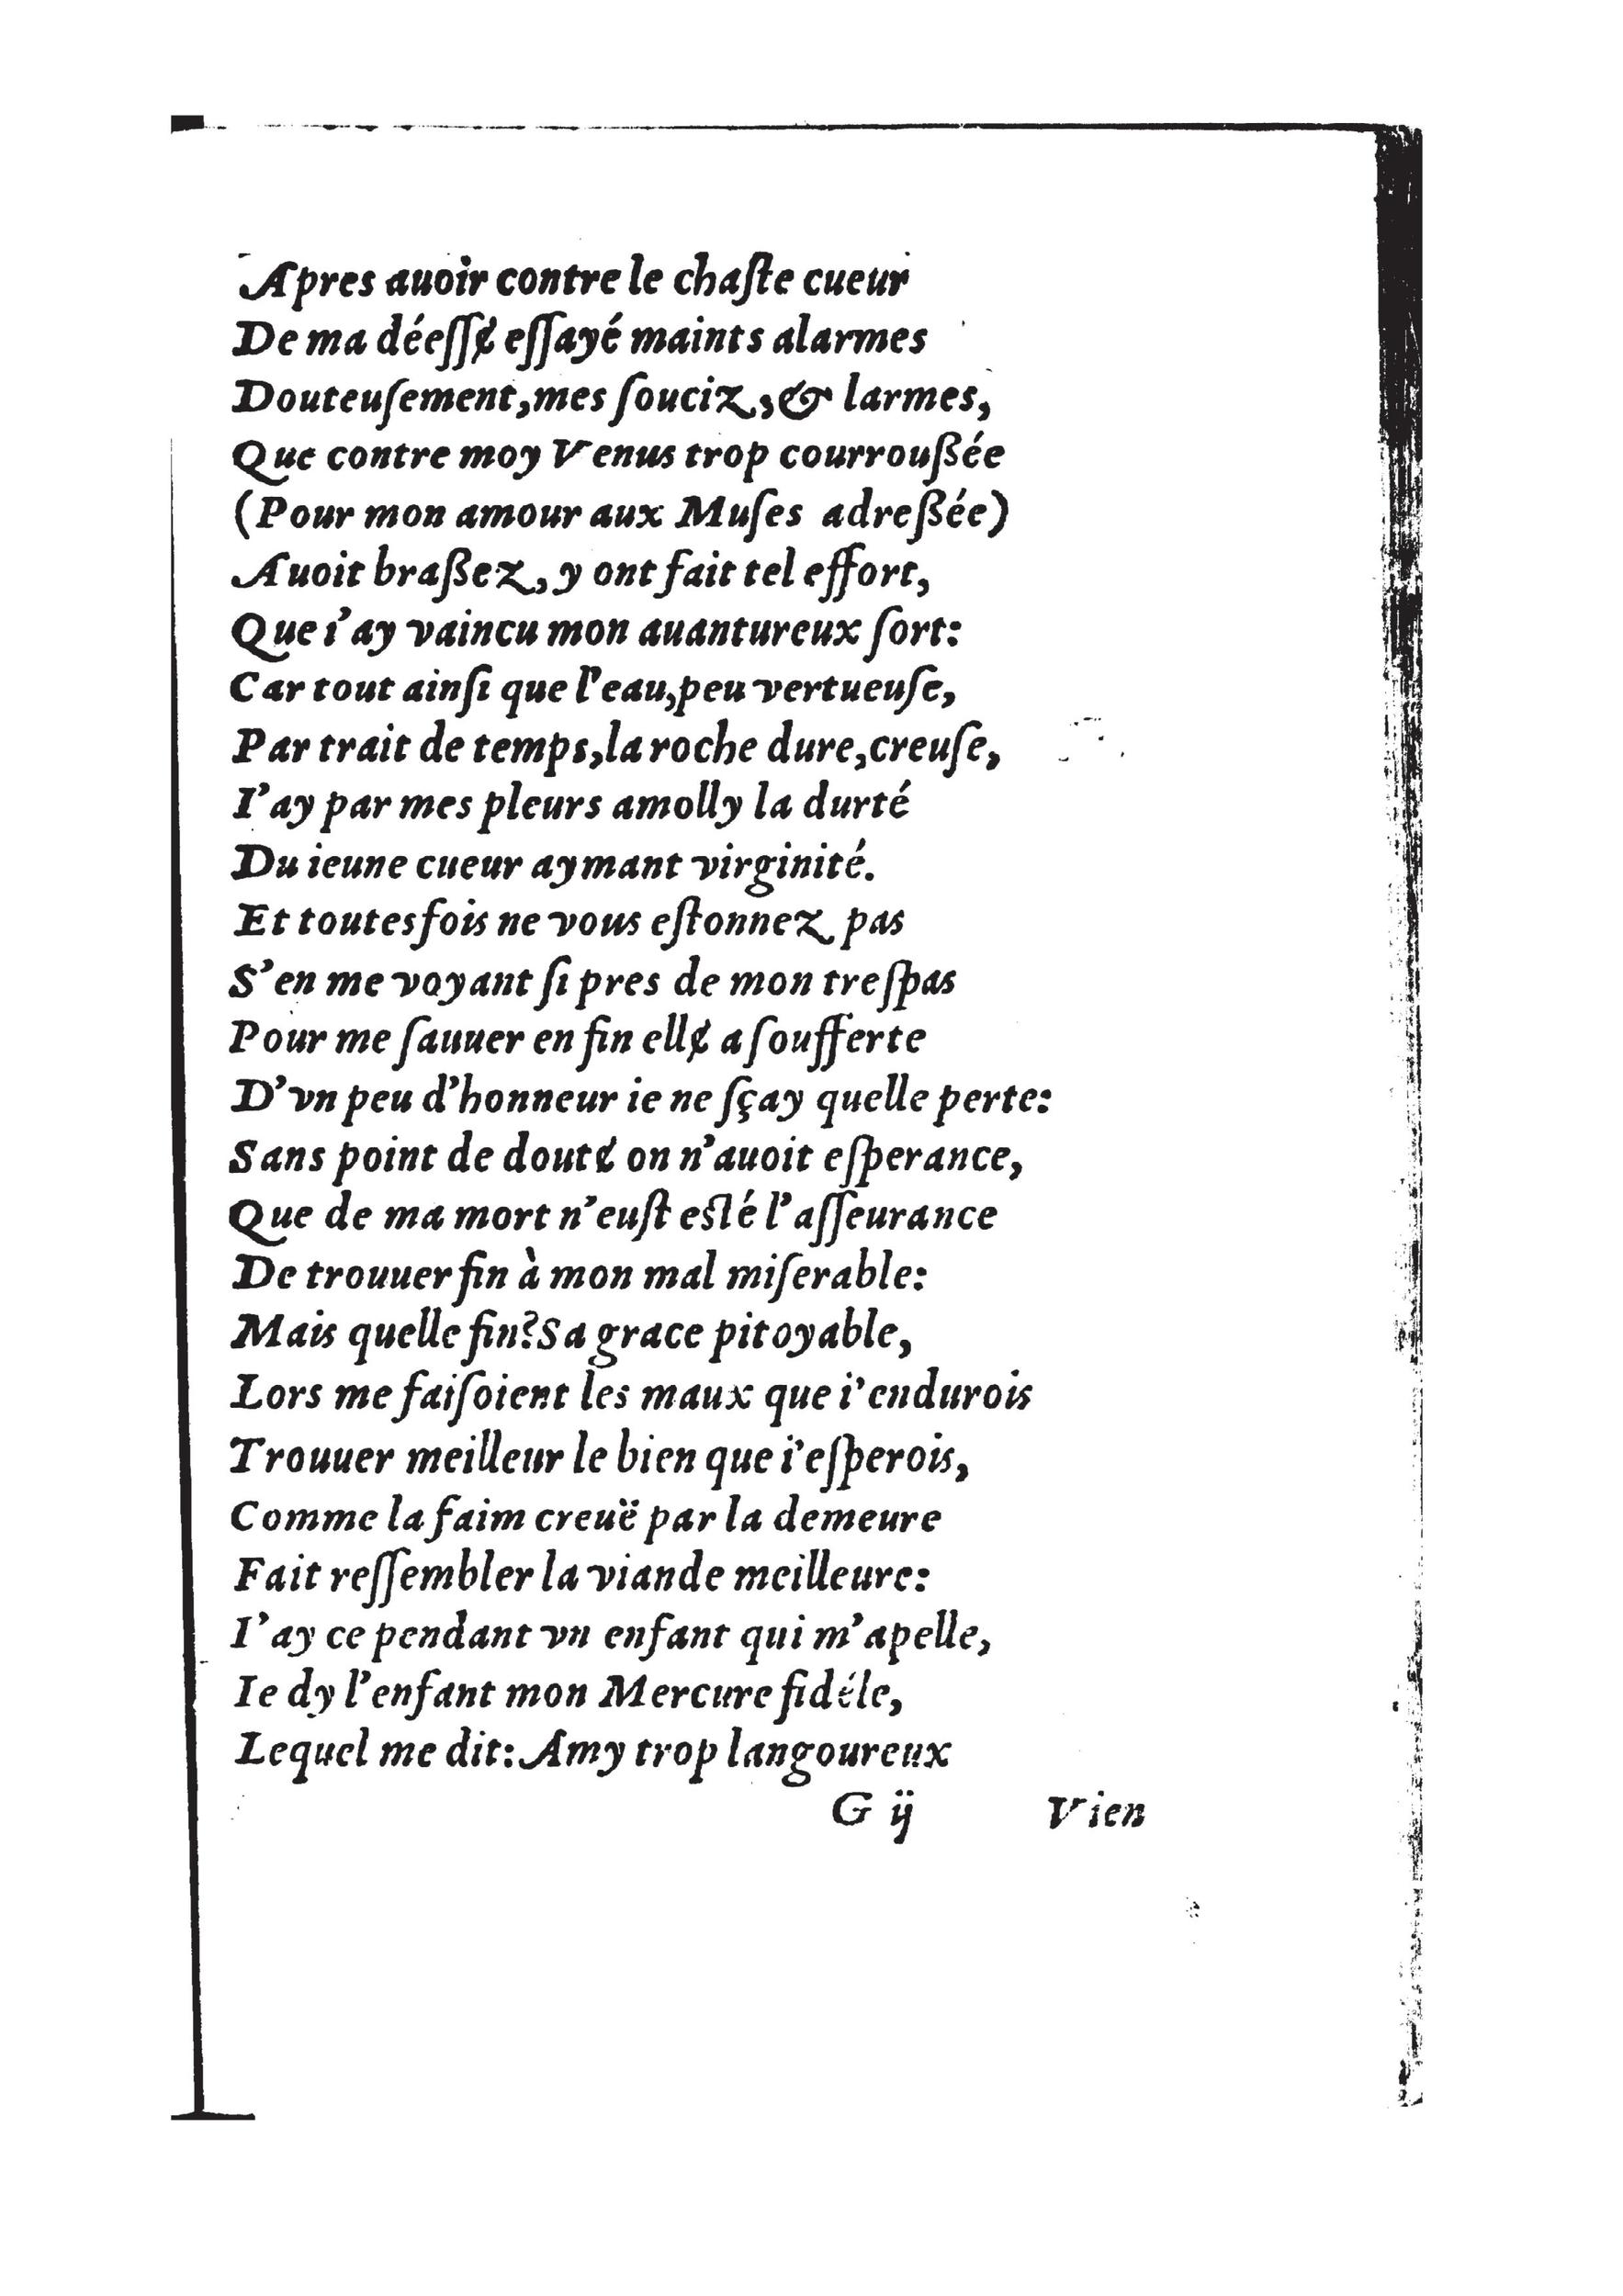 Apres auoir contre le chaſte cueur
De ma déeſſɇ eſſayé maints alarmes
Douteuſement,mes ſouciz,& larmes,
Que contre moy Venus trop courroußée
(Pour mon amour aux Muſes adreßée)
Auoit braßez,y ont fait tel effort,
Que i'ay vaincu mon auantureux ſort:
Car tout ainſi que l'eau,peu vertueuſe,
Par trait de temps,la roche dure,creuſe,
I'ay par mes pleurs amolly la durté
Du ieune cueur aymant virginité.
Et toutesfois ne vous eſtonnez pas
S'en me voyant ſi pres de mon treſpas
Pour me ſauuer en fin ellɇ a ſoufferte
D'vn peu d'honneur ie ne ſçay quelle perte:
Sans point de doutɇ on n'auoit eſperance,
Que de ma mort n'euſt eſté l'aſſeurance
De trouuer fin à mon mal miſerable:
Mais quelle fin?Sa grace pitoyable,
Lors me faiſoient les maux que i'endurois
Trouuer meilleur le bien que i'eſperois,
Comme la faim creuë par la demeure
Fait reſſembler la viande meilleure:
I'ay ce pendant vn enfant qui m'apelle,
Ie dy l'enfant mon Mercure fidéle,
Lequel me dit:Amy trop langoureux
G ij Vien